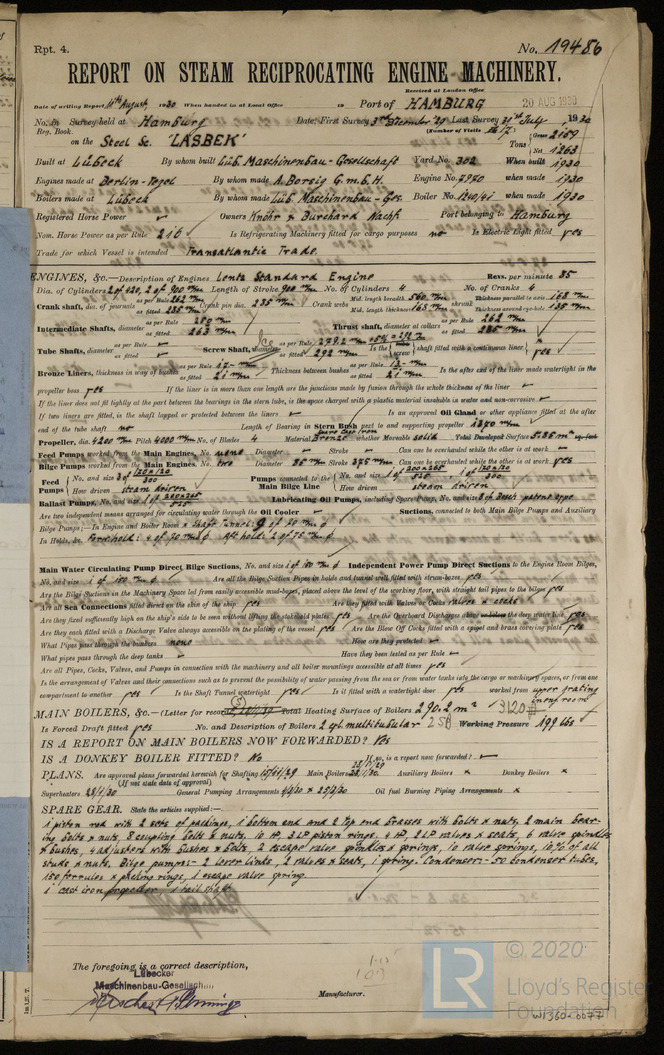 Rpt. 4.
No. 19486
REPORT ON STEAM RECIPROCATING ENGINE MACHINERY.
Received at London Office
Date of writing Report 11th August 1930 When handed in at Local Office 19 Port of HAMBURG 20 AUG 1930
No. in Survey held at Hamburg Date, First Survey 3rd December '29 Last Survey 31st July 1930
Reg. Book. (Number of Visits
on the Steel Sc. 'LASBEK' Tons Gross 2159 Net 1263
Built at Lübeck By whom built Lüb. Maschinenbau-Gesellschaft Yard No. 302 When built 1930
Engines made at Berlin-Tegel By whom made A. Borsig G.m.b.H. Engine No. when made 1930
Boilers made at Lübeck By whom made Lüb. Maschinenbau-Ges. Boiler No. 1240/41 when made 1930
Registered Horse Power Owners Knöhr & Burchard Nachf. Port belonging to Hamburg
Nom. Horse Power as per Rule 216 Is Refrigerating Machinery fitted for cargo purposes no Is Electric Light fitted yes
Trade for which Vessel is intended Transatlantic Trade.
ENGINES, &c.—Description of Engines Lentz Standard Engine Revs. per minute 85
Dia. of Cylinders 2 of 420, 2 of 900 m/m Length of Stroke 900 m/m No. of Cylinders 4 No. of Cranks 4
Crank shaft, dia. of journals as per Rule 262 m/m as fitted 285 m/m Crank pin dia. 285 m/m Crank webs Mid. length breadth 560 m/m Mid. length thickness 168 m/m shrunk Thickness parallel to axis 168 m/m Thickness around eye-hole 135 m/m
Intermediate Shafts, diameter as per Rule 250 m/m as fitted 263 m/m Thrust shaft, diameter at collars as per Rule 262 m/m as fitted 285 m/m
Tube Shafts, diameter as per Rule as fitted Screw Shaft, diameter as per Rule 279.2 as fitted 292 m/m Is the screw shaft fitted with a continuous liner yes
Bronze Liners, thickness in way of bushes as per Rule as fitted 21 m/m Thickness between bushes as per Rule as fitted 21 m/m Is the after end of the liner made watertight in the
propeller boss yes If the liner is in more than one length are the junctions made by fusion through the whole thickness of the liner
If the liner does not fit tightly at the part between the bearings in the stern tube, is the space charged with a plastic material insoluble in water and non-corrosive
If two liners are fitted, is the shaft lapped or protected between the liners Is an approved Oil Gland or other appliance fitted at the after
end of the tube shaft no Length of Bearing in Stern Bush next to and supporting propeller 1370 m/m
Propeller, dia. 4200 m/m Pitch 4000 m/m No. of Blades 4 Material Bronze whether Moveable solid Total Developed Surface 5.35 m² sq. feet
Feed Pumps worked from the Main Engines, No. none Diameter Stroke Can one be overhauled while the other is at work
Bilge Pumps worked from the Main Engines, No. two Diameter 95 m/m Stroke 375 m/m Can one be overhauled while the other is at work yes
Feed Pumps No. and size How driven steam driven Pumps connected to the Main Bilge Line No. and size How driven steam driven
Ballast Pumps, No. and size Lubricating Oil Pumps, including Spare Pump, No. and size 2 of Bosch patent type
Are two independent means arranged for circulating water through the Oil Cooler Suctions, connected to both Main Bilge Pumps and Auxiliary
Bilge Pumps;—In Engine and Boiler Room & Shaft Tunnel:
In Holds, &c. Forehold: 4 of 70 m/m ø Aft hold: 2 of 75 m/m ø
Main Water Circulating Pump Direct Bilge Suctions, No. and size 1 of 150 m/m ø Independent Power Pump Direct Suctions to the Engine Room Bilges,
No. and size 1 of 150 m/m ø Are all the Bilge Suction Pipes in holds and tunnel well fitted with strum-boxes yes
Are the Bilge Suctions in the Machinery Space led from easily accessible mud-boxes, placed above the level of the working floor, with straight tail pipes to the bilges yes
Are all Sea Connections fitted direct on the skin of the ship yes Are they fitted with Valves or Cocks valves & cocks
Are they fixed sufficiently high on the ship's side to be seen without lifting the stokehold plates yes Are the Overboard Discharges above or below the deep water line yes
Are they each fitted with a Discharge Valve always accessible on the plating of the vessel yes Are the Blow Off Cocks fitted with a spigot and brass covering plate yes
What Pipes pass through the bunkers none How are they protected
What pipes pass through the deep tanks Have they been tested as per Rule
Are all Pipes, Cocks, Valves, and Pumps in connection with the machinery and all boiler mountings accessible at all times yes
Is the arrangement of Valves and their connections such as to prevent the possibility of water passing from the sea or from water tanks into the cargo or machinery spaces, or from one
compartment to another yes Is the Shaft Tunnel watertight yes Is it fitted with a watertight door yes worked from upper grating in eng. room
MAIN BOILERS, &c.—(Letter for record (S)) Total Heating Surface of Boilers 290.2 m² 3120
Is Forced Draft fitted yes No. and Description of Boilers 2 cyl. multitubular 2SB Working Pressure 199 lbs
IS A REPORT ON MAIN BOILERS NOW FORWARDED? Yes
IS A DONKEY BOILER FITTED? No If so, is a report now forwarded?
PLANS. Are approved plans forwarded herewith for Shafting 15/11/29 Main Boilers 28/1/30 Auxiliary Boilers × Donkey Boilers ×
(If not state date of approval)
Superheaters 28/1/30 General Pumping Arrangements 4/2/30 & 25/2/30 Oil fuel Burning Piping Arrangements ×
SPARE GEAR. State the articles supplied:—
1 piston rod with 2 sets of packings, 1 bottom end and 2 top end brasses with bolts & nuts, 2 main bear-
ing bolts & nuts, 8 coupling bolts & nuts, 10 HP, 3 LP piston rings, 4 HP, 2 LP valves & seats, 6 valve spindles
& bushes, 4 adjusters with bushes & bolts, 2 escape valve spindles & springs, 10 valve springs, 10% of all
studs & nuts. Bilge pumps:- 2 lever links, 2 valves & seats, 1 spring. Condenser:- 50 condenser tubes,
150 ferrules & packing rings, 1 escape valve spring.
1 cast iron propeller 1 tail shaft
The foregoing is a correct description,
Lübecker
Maschinenbau-Gesellsch
Manufacturer.
© 2020
LR
Lloyd's Register
Foundation
W1360-0077